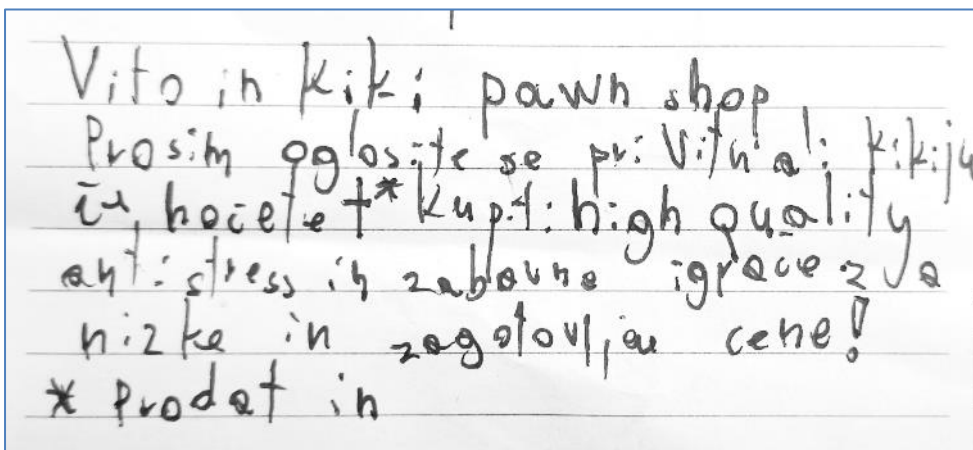 Vito in kiki pawn shop
Prosim oglosite se pri Vitu ali kikiju
hočete* kupiti high quality
antistress in zabavne igrače za
nizke in cene!
* Prodat in